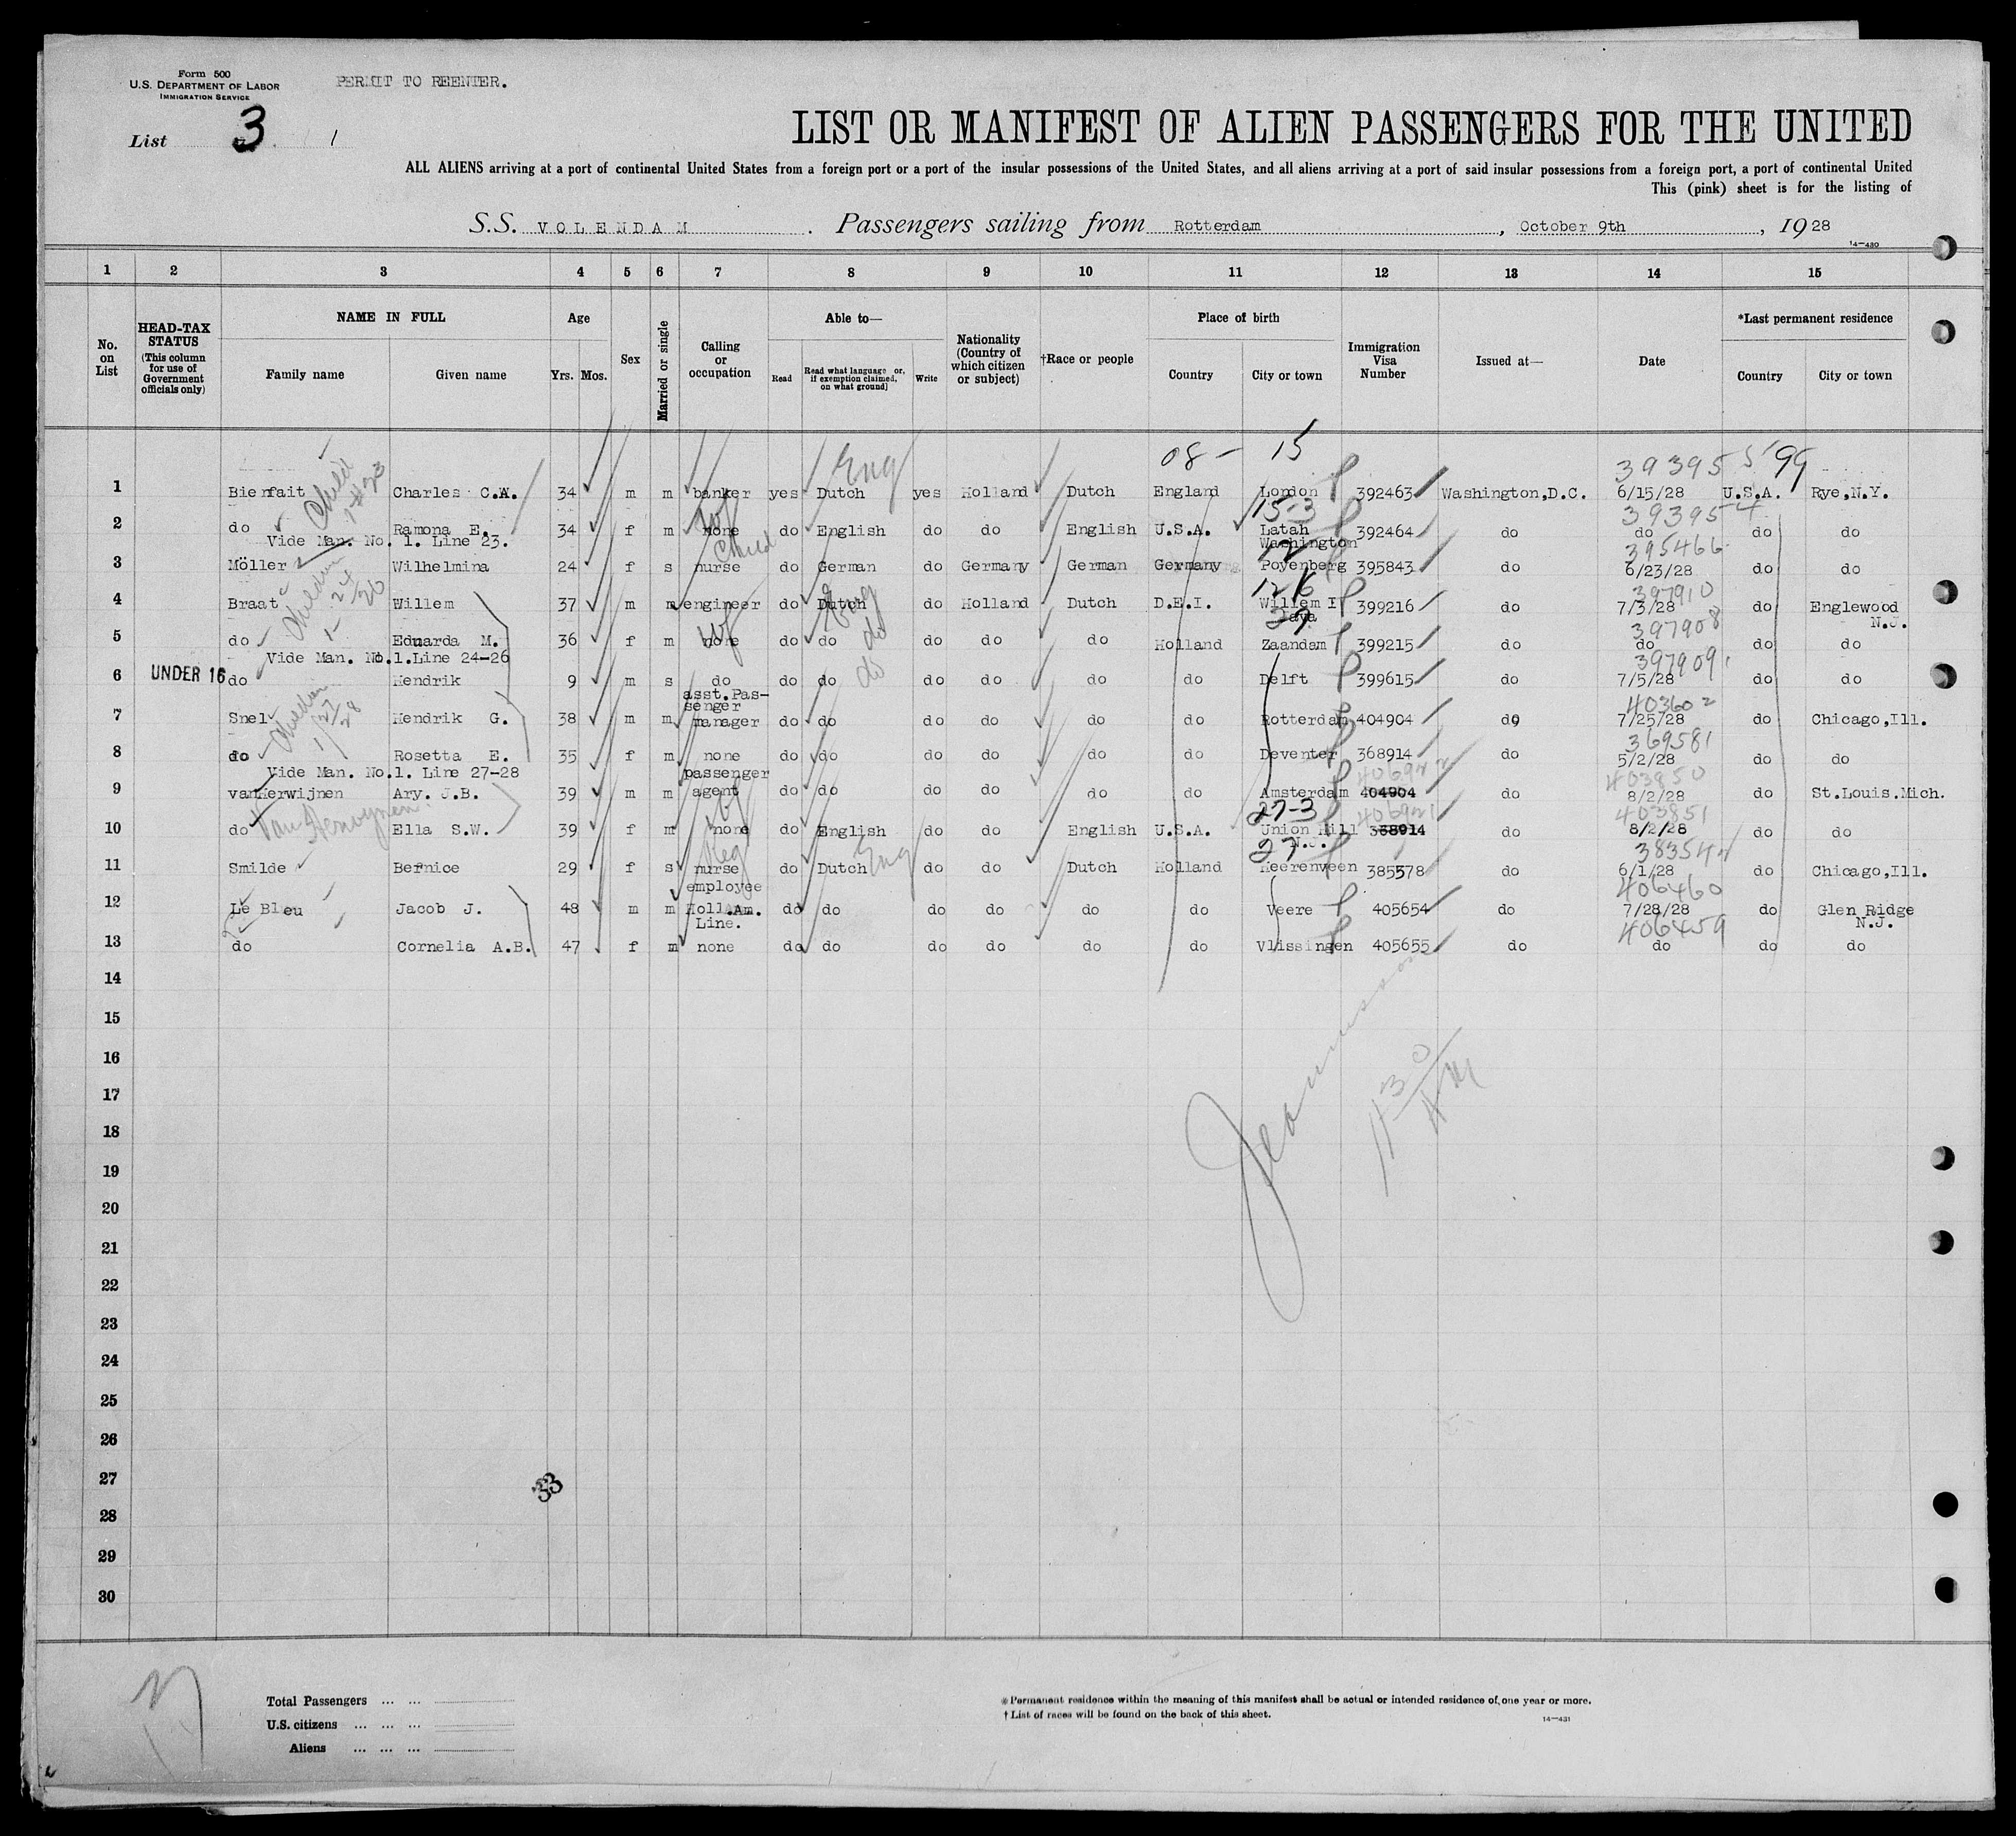 Form 500
U.S. DEPARTMENT OF LABOR
IMMIGRATION SERVICE
PERMIT TO REENTER.
List 3 1
LIST OR MANIFEST OF ALIEN PASSENGERS FOR THE UNITED
ALL ALIENS arriving at a port of continental United States from a foreign port or a port of the insular possessions of the United States, and all aliens arriving at a port of said insular possessions from a foreign port, a port of continental United
This (pink) sheet is for the listing of
S.S. VOLENDAM . Passengers sailing from Rotterdam , October 9th , 19 28
14—430
1 2 3 4 5 6 7 8 9 10 11 12 13 14 15
No. on List
HEAD-TAX STATUS (This column for use of Government officials only)
NAME IN FULL Family name Given name
Age Yrs. Mos.
Sex
Married or single
Calling or occupation
Able to— Read Read what language or, if exemption claimed, on what ground Write
Nationality (Country of which citizen or subject)
†Race or people
Place of birth Country City or town
Immigration Visa Number
Issued at—
Date
*Last permanent residence Country City or town
08 - 15 39395 5 99
Child 1#23 Eng
1 Bienfait Charles C.A. 34 m m banker yes Dutch yes Holland Dutch England London 392463 Washington,D.C. 6/15/28 U.S.A. Rye,N.Y.
wf 15-3 393954
2 do Ramona E. 34 f m none do English do do English U.S.A. Latah Washington 392464 do do do do
Vide Man. No. 1. Line 23.
Child 12 395466
3 Möller Wilhelmina 24 f s nurse do German do Germany German Germany Poyenberg 395843 do 6/23/28 do do
Children 1- 24/26 Eng 12 16 397910
4 Braat Willem 37 m m engineer do Dutch do Holland Dutch D.E.I. Willem I Java 399216 do 7/3/28 do Englewood N.J.
wf do 27 397908
5 do Eduarda M. 36 f m none do do do do do Holland Zaandam 399215 do do do do
Vide Man. No.1.Line 24-26
do 397909
6 UNDER 16 do Hendrik 9 m s do do do do do do do Delft 399615 do 7/5/28 do do
Children 1/27/28 403602
7 Snel Hendrik G. 38 m m asst.Pas-senger manager do do do do do do Rotterdam 404904 do 7/25/28 do Chicago,Ill.
369581
8 do Rosetta E. 35 f m none do do do do do do Deventer 368914 do 5/2/28 do do
Vide Man. No.1. Line 27-28
406922 403850
9 vanHerwijnen Ary. J.B. 39 m m passenger agent do do do do do do Amsterdam 404904 do 8/2/28 do St.Louis.Mich.
Van Herwynen wf 27-3 406921 403851
10 do Ella S.W. 39 f m none do English do do English U.S.A. Union Hill N.J. 368914 do 8/2/28 do do
Neg Eng 27 383542
11 Smilde Bernice 29 f s nurse do Dutch do do Dutch Holland Heerenveen 385578 do 6/1/28 do Chicago,Ill.
406460
12 Le Bleu Jacob J. 48 m m employee Holl.Am. Line. do do do do do do Veere 405654 do 7/28/28 do Glen Ridge N.J.
406459
13 do Cornelia A.B. 47 f m none do do do do do do Vlissingen 405655 do do do do
14
15
16
17
18
19
20
21
22
23
24
25
26
27
28
29
30
11 30 AM
33
13
Total Passengers ... ...
U.S. citizens ... ... ...
Aliens ... ... ...
*Permanent residence within the meaning of this manifest shall be actual or intended residence of one year or more.
† List of races will be found on the back of this sheet.
14—431